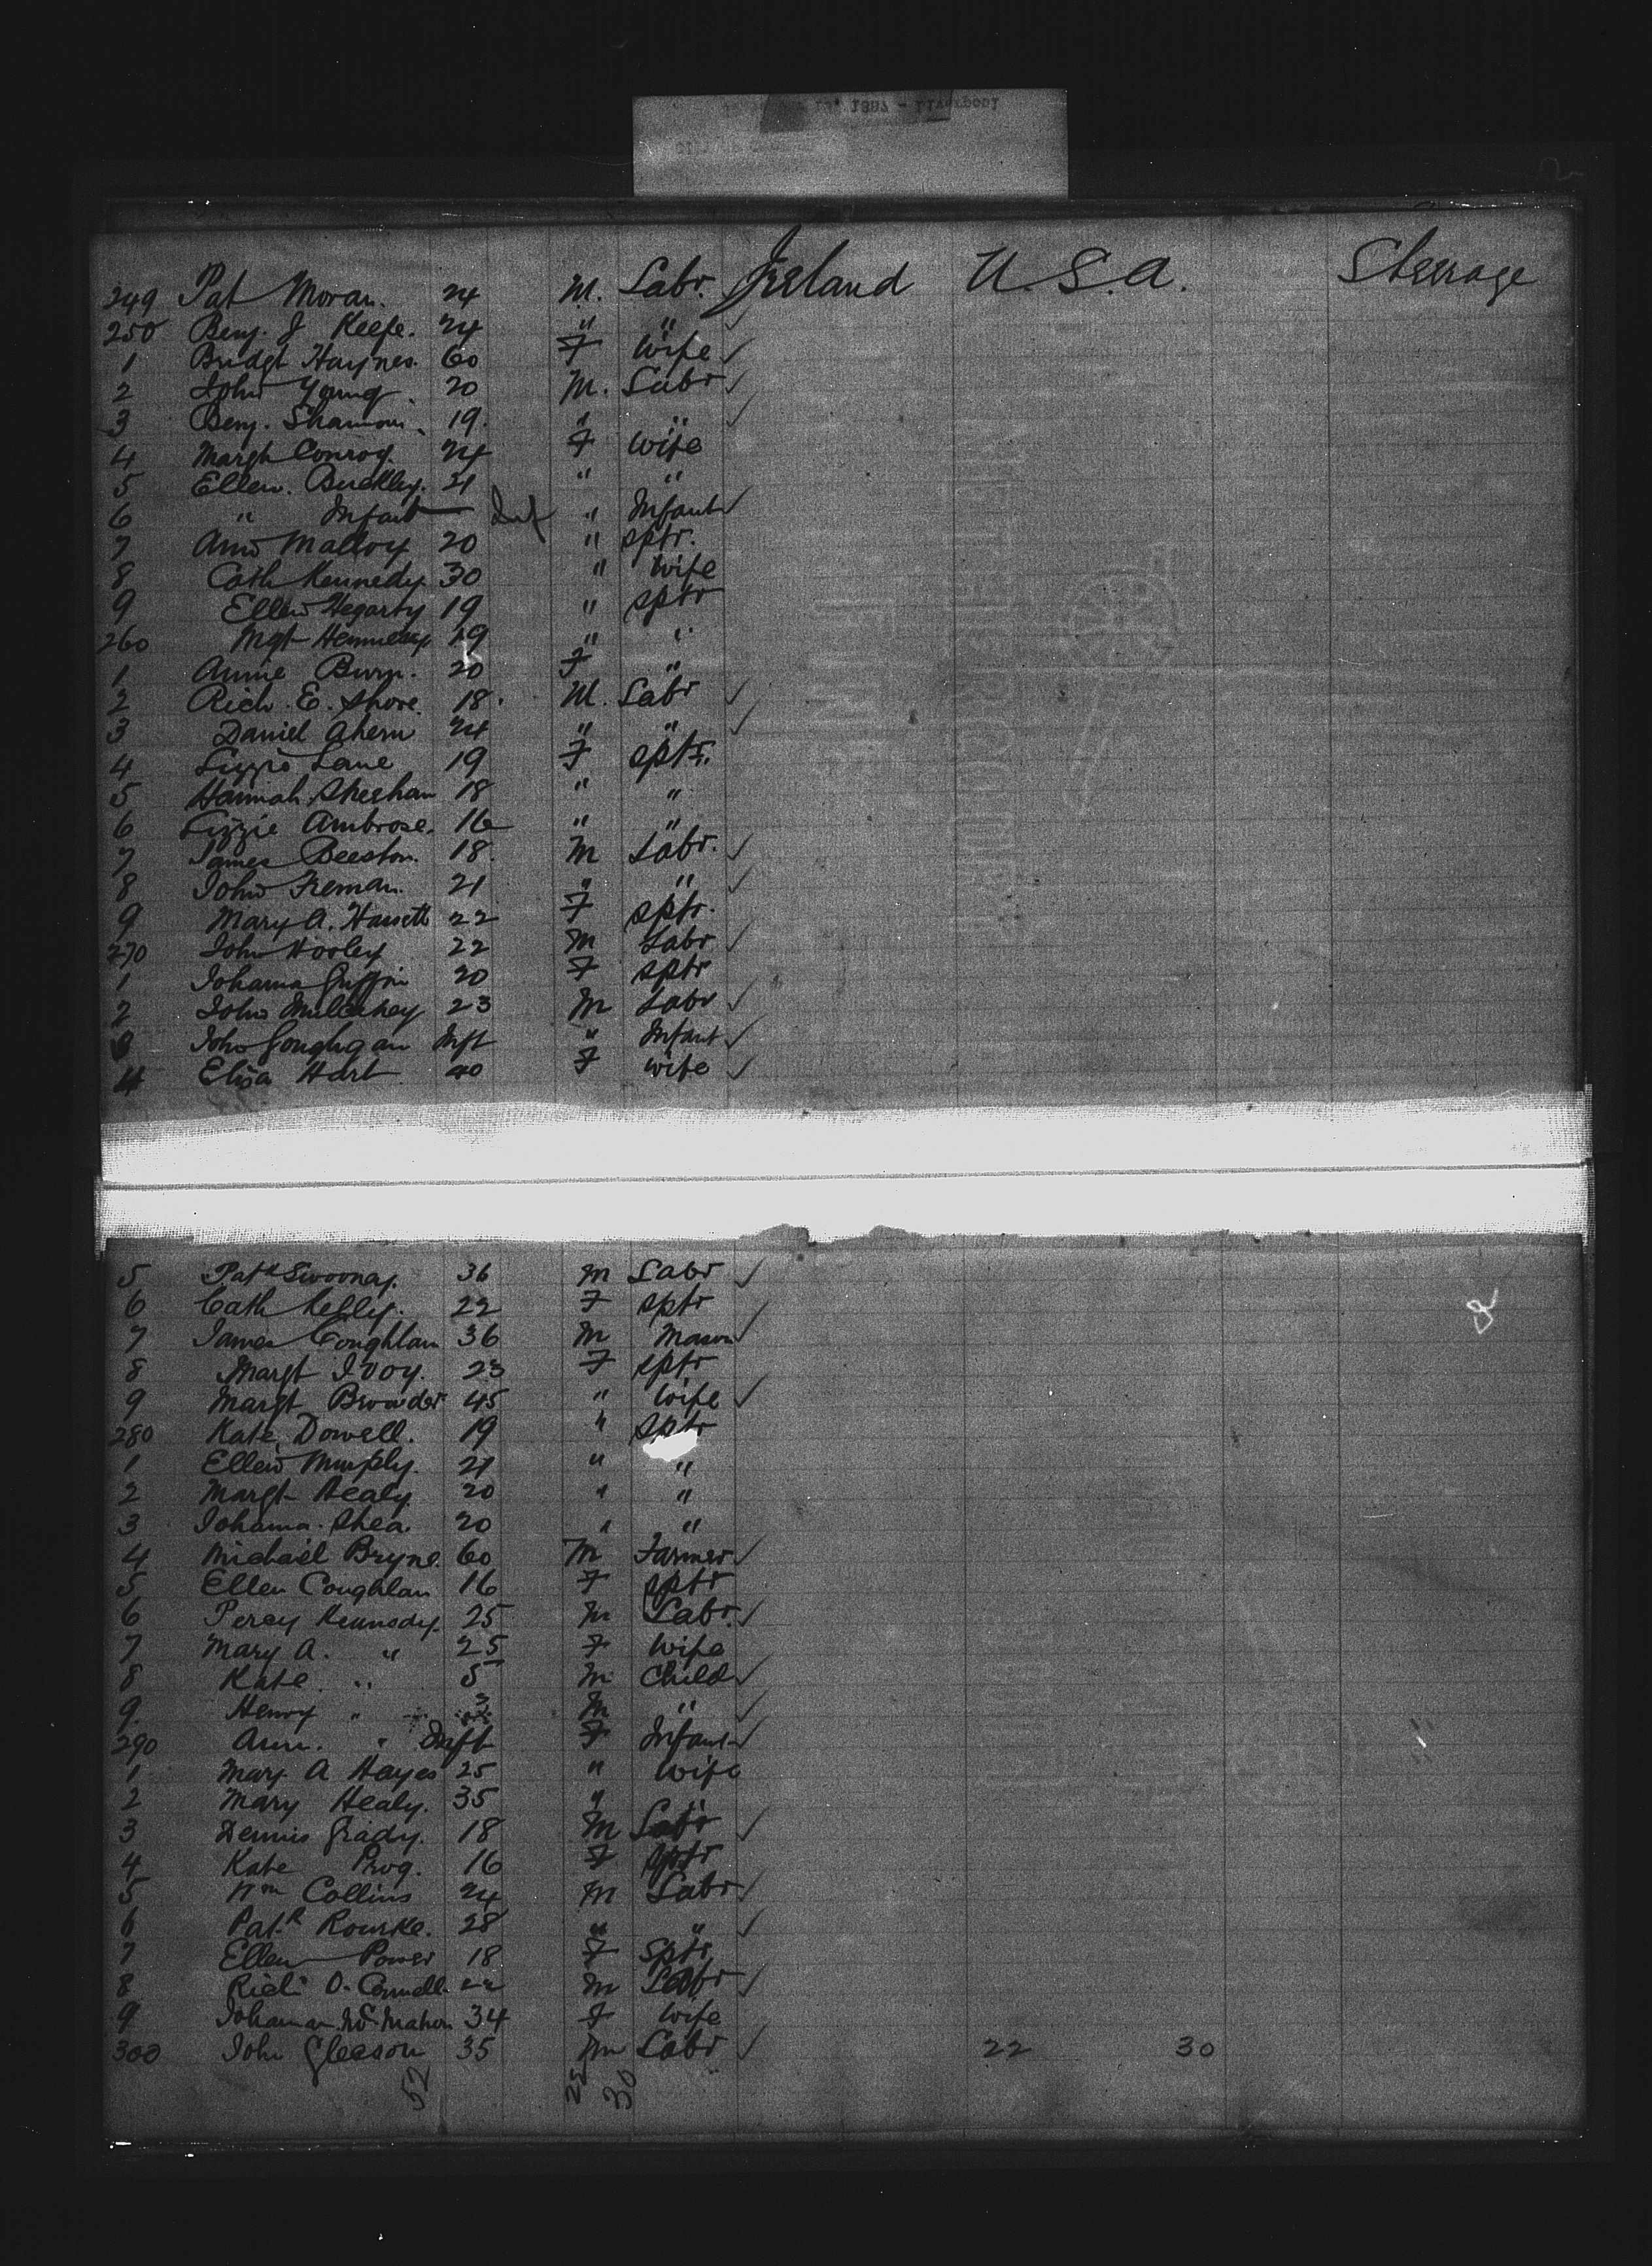 1887 - Liverpool
249 Pat Moran. 24 M. Labr. Ireland U.S.A. Steerage
250 Benj. J Keefe. 24 " " ✓
1 Bridgt Haynes. 60 F Wife ✓
2 John Young. 20 M. Labr ✓
3 Benj. Shannon. 19. " " ✓
4 Margt Conroy. 24 F Wife
5 Ellen. Buckley. 21 " "
6 " Infant — Inf " Infant ✓
7 Ann Malloy 20 " sptr.
8 Cath Kennedy 30 " Wife
9 Ellen Hegarty 19 " sptr
260 Mgt Hennessy 19 " "
1 Annie Burn. 20 F "
2 Rich. E. Shore. 18. M. Labr ✓
3 Daniel Ahern 24 " " ✓
4 Lizzie Lane 19 F sptr.
5 Hannah Sheehan 18 " "
6 Lizzie Ambrose. 16 " "
7 James Beeston. 18. M Labr. ✓
8 John Freman. 21 " " ✓
9 Mary A. Hassett 22 F sptr.
270 John Hooley 22 M Labr ✓
1 Johanna Griffin 20 F sptr
2 John Mulcahey 23 M Labr ✓
3 John Goughgan Inft " Infant ✓
4 Eliza Hart 40 F Wife ✓
5 Patk Swoonay. 36 M Labr ✓
6 Cath Kelly. 22 F sptr
7 James Coughlan 36 M Mason ✓
8 Margt Ivoy. 23 F sptr
9 Margt Browder 45 " Wife ✓
280 Kate Dowell. 19 " sptr
1 Ellen Murphy. 21 " "
2 Margt Healy 20 " "
3 Johanna Shea 20 " "
4 Michael Bryne. 60 M Farmer ✓
5 Ellen Coughlan 16 F sptr
6 Percy Kennedy. 25 M Labr. ✓
7 Mary A. " 25 F Wife
8 Kate. " 5 M Child ✓
9. Henry " 3 M " ✓
290 Ann. " Inft F Infant ✓
1 Mary A Hayes 25 " Wife
2 Mary Healy. 35 " "
3 Dennis Grady. 18 M Labr ✓
4 Kate 16 F sptr
5 Wm Collins 24 M Labr ✓
6 Patk Rourke. 28 " " ✓
7 Ellen Power 18 F Sptr
8 Richd O. Connell. 22 M Labr ✓
9 Johanna McMahon 34 F Wife
300 John Gleeson 35 M Labr ✓ 22 30
52 22 30